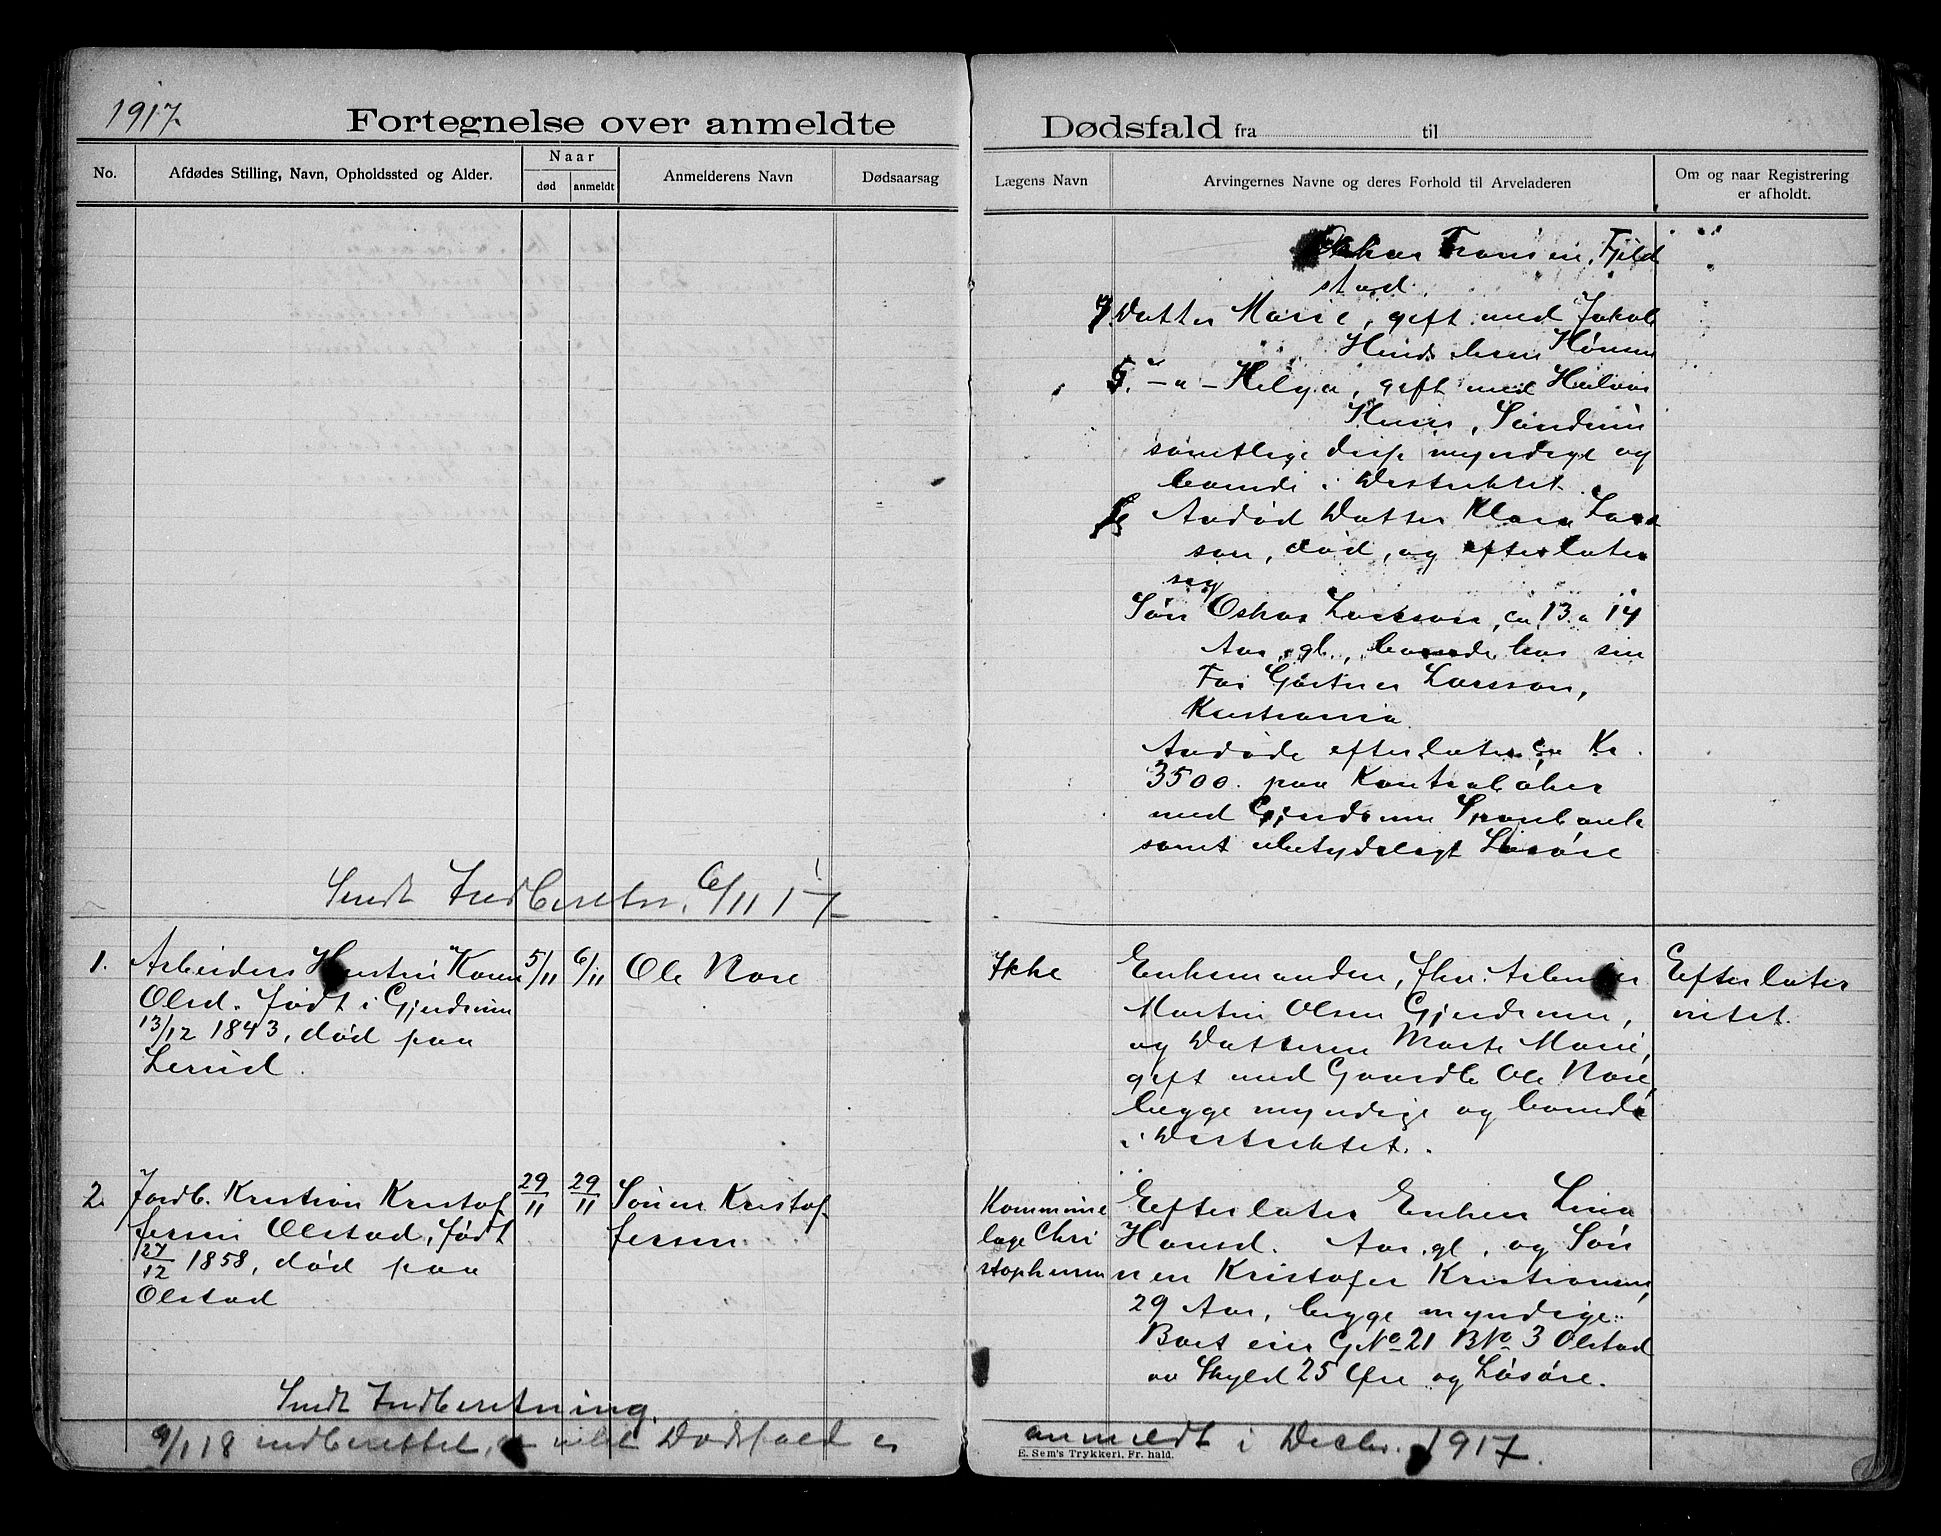 1917.
Fortegnelse over anmeldte
Dødsfald fra til
No.
Afdødes Stilling, Navn, Opholdssted og Alder.
Naar
død
anmeldt
Anmelderens Navn
Dødsaarsag
Lægens Navn
Arvingernes Navne og deres Forhold til Arveladeren
Om og naar Registrering
er afholdt.
Fransen, Fjeld
stad.
Datter Marie, gift med Jakob
5. -"- Helga, gift med
samtlige disse myndige og
boende i Distriktet.
Avdød Datter Klara Lars
son, død, og efterlater
seg
Søn Oskar Larsson, ca 13 a 14
Aar gl., boende hos sin
Far Gartner Larsson,
Kristiania.
Avdøde efterlater ca Kr.
3500. paa Kontrabøker
med Gjerdrum Sparebank
samt ubetydeligt Løsøre
Sendt Indberetn. 6/11 17
1.
Arbeiders Hustru Karen
Olsd. født i Gjerdrum
13/12 1843, død paa
Lerud.
5/11
6/11
Ole Nose
Ikke
Enkemanden, fhv. Arbeider
Martin Olsen Gjerdrum,
og Datteren Marte Marie,
gift med Gaardb. Ole Nose,
begge myndige og boende
i Distriktet.
Efterlater
intet.
2.
Jordb. Kristian Kristof
fersen Olstad, født
27/12 1858, død paa
Olstad
29/11
29/11
Søren Kristof
fersen
Kommune
læge Chri
stophersen
Efterlater Enken Lina
Hansd. Aar gl, og Søn
nen Kristofer Kristiansen,
29 Aar, begge myndige.
Boet eier GNo 21 BNo 3 Olstad
av Skyld 25 Øre og Løsøre.
Sendt Indberetning.
9/1 18 indberettet, at intet Dødsfald er
anmeldt i Decbr. 1917.
E. Sem's Trykkeri, Fr. hald.